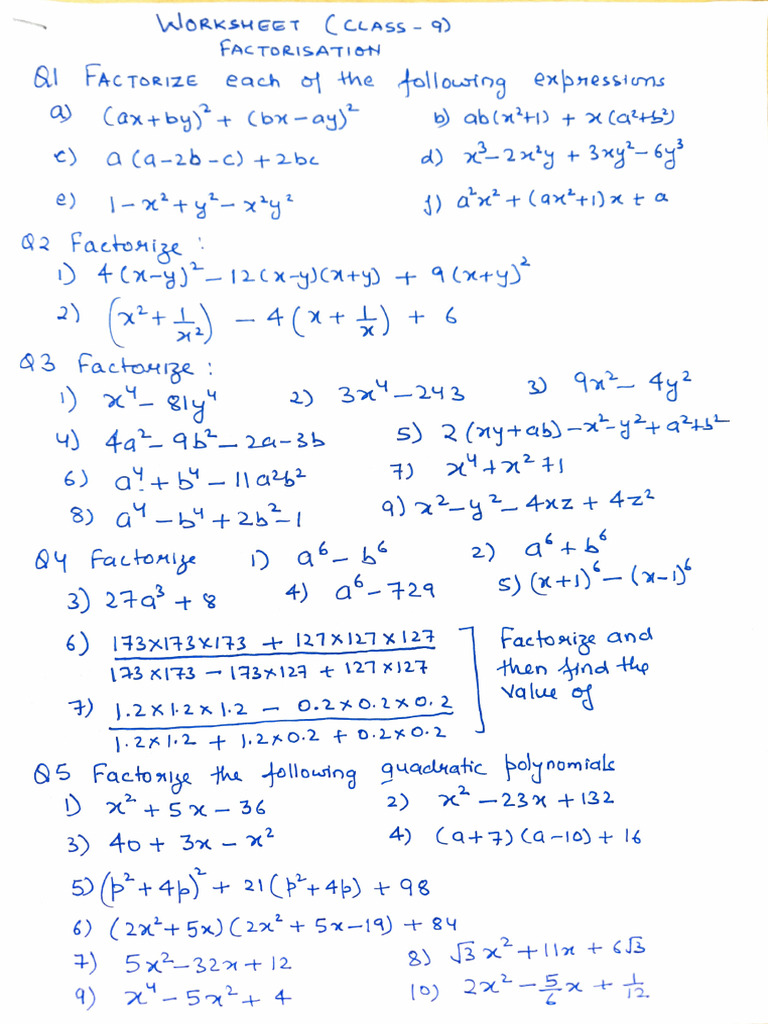 WORKSHEET (CLASS - 9)
FACTORISATION
Q1 FACTORIZE each of the following expressions
a) (ax+by)² + (bx-ay)² b) ab(x²+1) + x(a²+b²)
c) a(a-2b-c)+2bc d) x³-2x²y + 3xy²-6y³
e) 1-x²+y²-x²y² f) a²x²+(ax²+1)x+a
Q2 Factorize :
1) 4(x-y)²-12(x-y)(x+y) + 9(x+y)²
2) (x²+1/x²) - 4(x+1/x) + 6
Q3 Factorize :
1) x⁴-81y⁴ 2) 3x⁴-243 3) 9x²-4y²
4) 4a²-9b²-2a-3b 5) 2(xy+ab)-x²-y²+a²+b²
6) a⁴+b⁴-11a²b² 7) x⁴+x²+1
8) a⁴-b⁴+2b²-1 9) x²-y²-4xz+4z²
Q4 Factorize 1) a⁶-b⁶ 2) a⁶+b⁶
3) 27a³+8 4) a⁶-729 5) (x+1)⁶-(x-1)⁶
6) 173×173×173 + 127×127×127 / 173×173-173×127+127×127 Factorize and then find the value of
7) 1.2×1.2×1.2 - 0.2×0.2×0.2 / 1.2×1.2 + 1.2×0.2 + 0.2×0.2
Q5 Factorize the following quadratic polynomials
1) x²+5x-36 2) x²-23x+132
3) 40+3x-x² 4) (a+7)(a-10)+16
5) (p²+4p)²+21(p²+4p)+98
6) (2x²+5x)(2x²+5x-19)+84
7) 5x²-32x+12 8) √3x²+11x+6√3
9) x⁴-5x²+4 10) 2x²-5/6x+1/12.